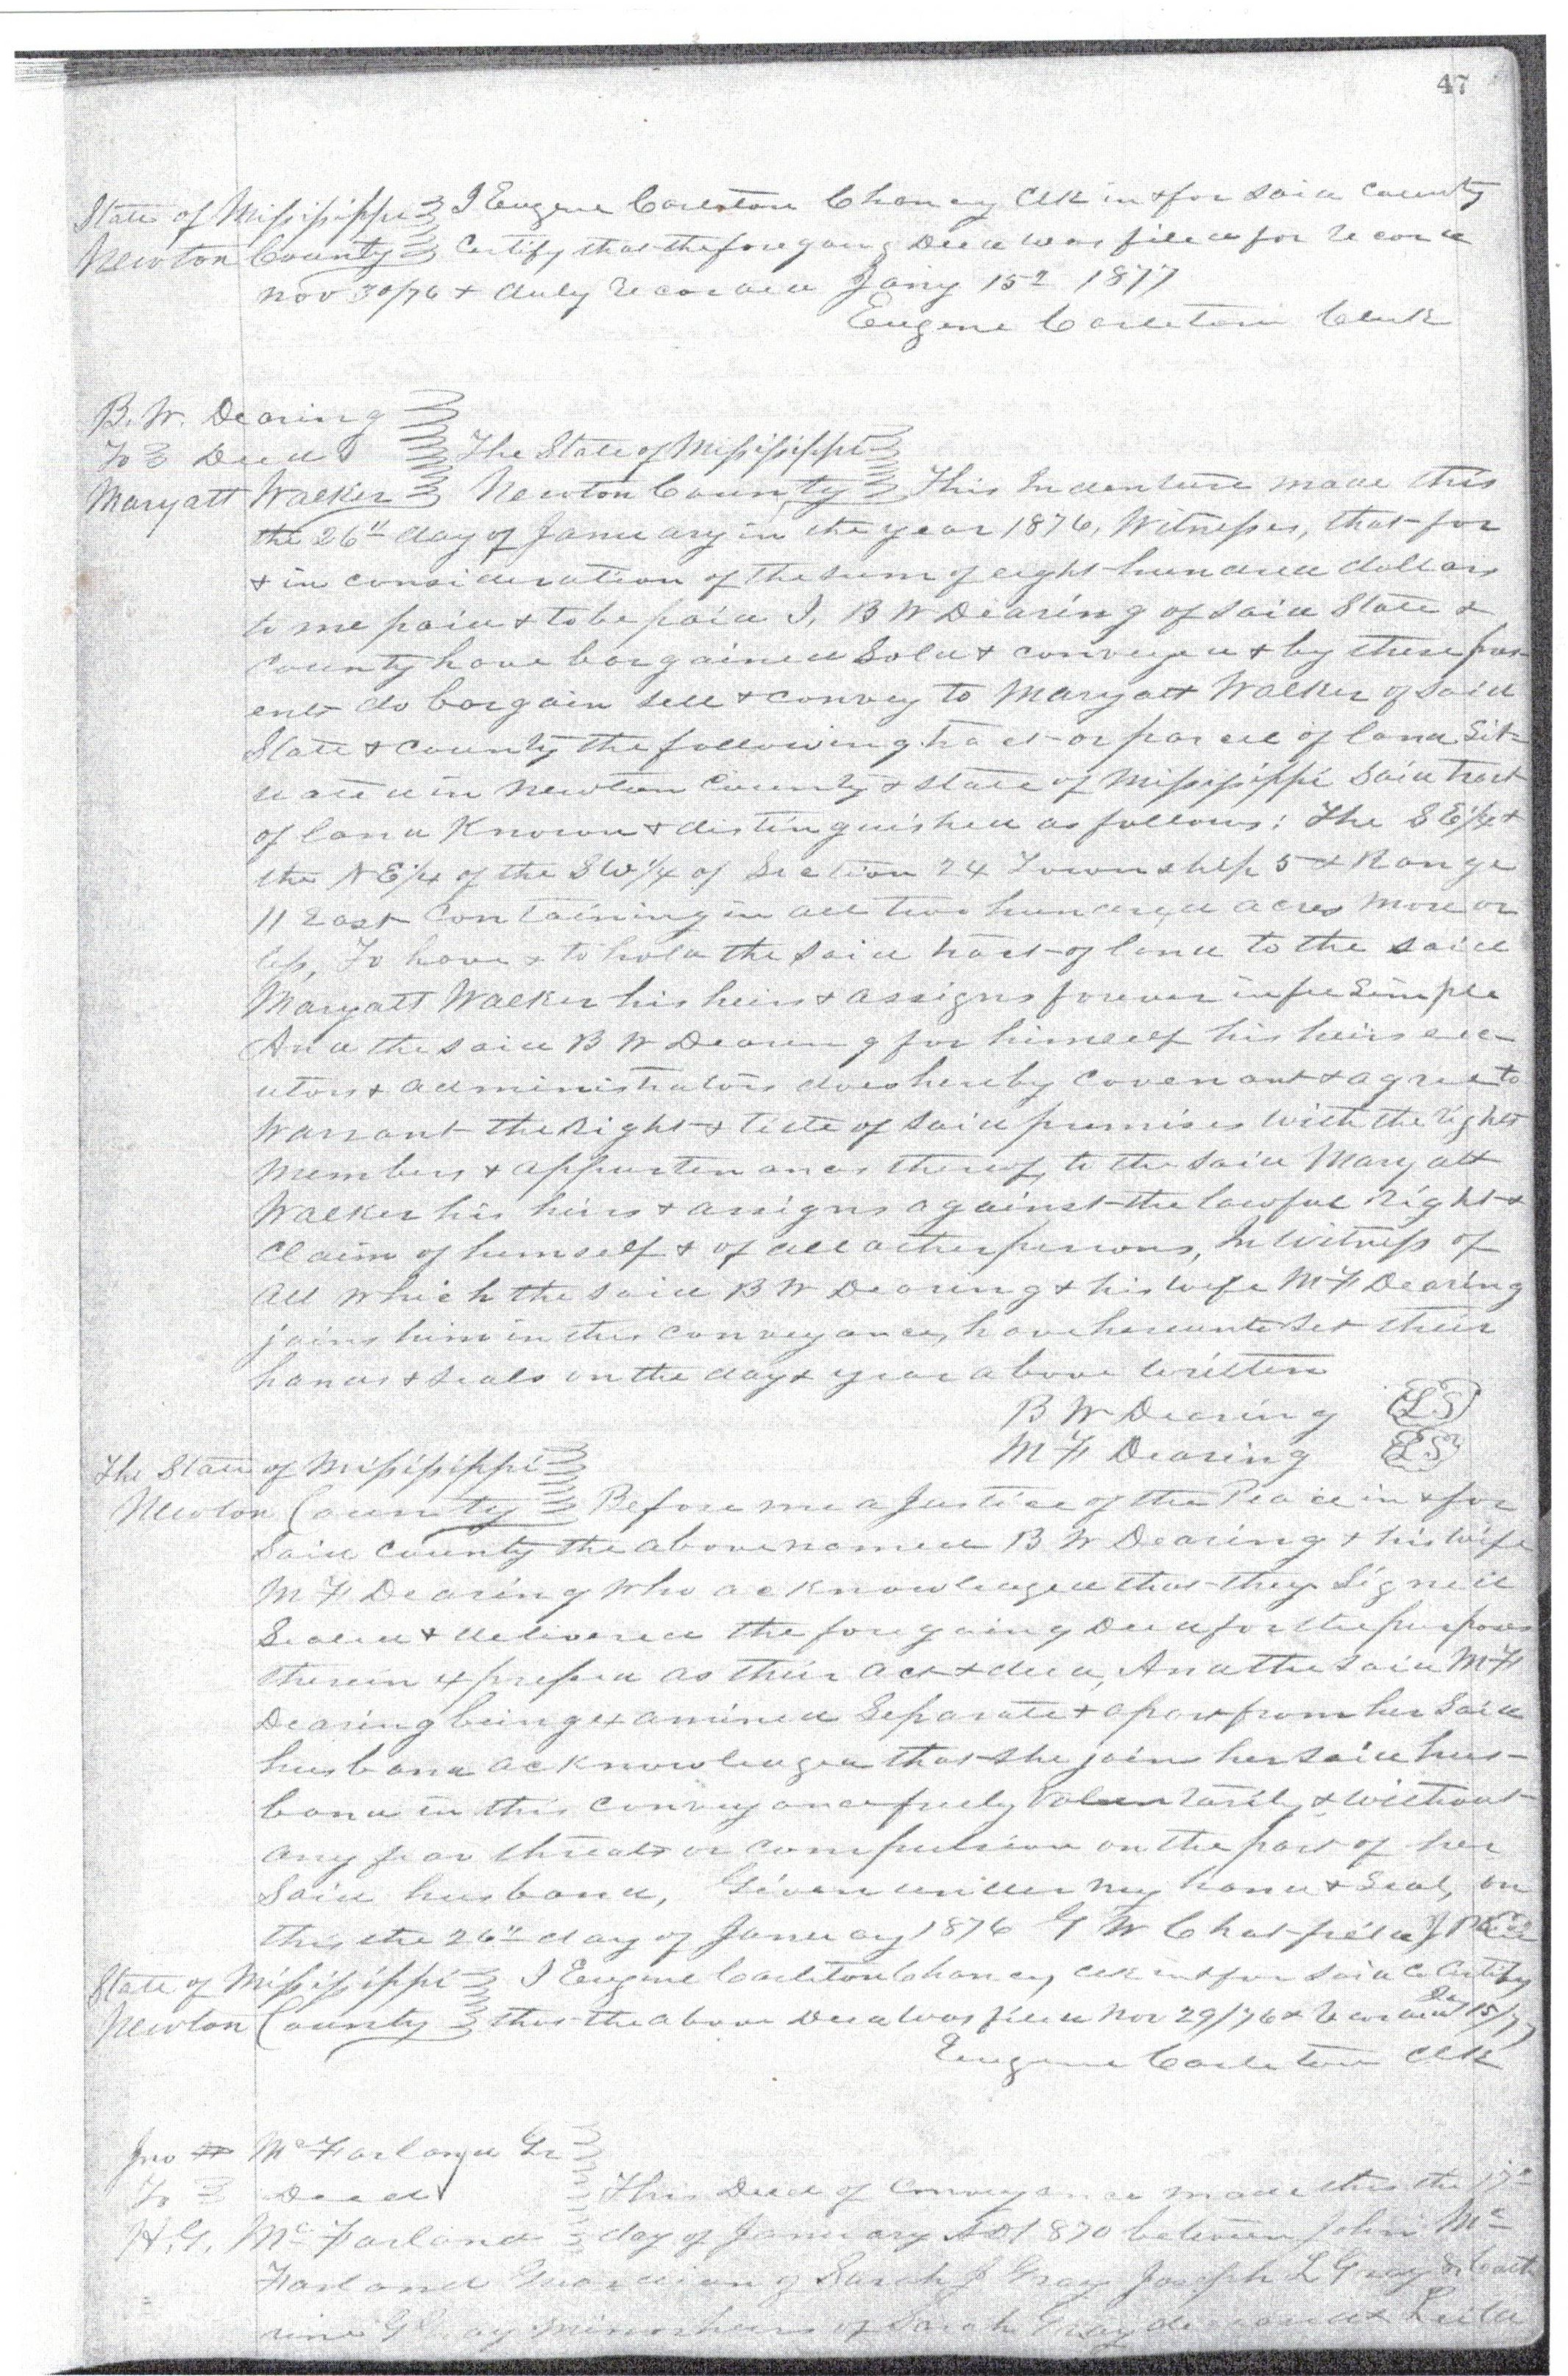 47
State of Mississippi I Eugene Carleton Chancy Clk in & for said County
Newton County Certify that the foregoing Deed was filed for record
Nov 30/76 & duly recorded Jany 15th 1877
Eugene Carleton Clerk
B. W. Dearing
To Deed The State of Mississippi
Maryatt Walker Newton County This Indenture made this
the 26" day of January in the year 1876, Witnesses, that for
& in consideration of the sum of eight hundred dollars
to me paid & to be paid I, B W Dearing of said State &
County have bargained Sold & conveyed & by these pres-
ents do bargain sell & convey to Maryatt Walker of said
State & County the following tract or parcel of land Sit-
uated in Newton County & State of Mississippi Said tract
of land Known & distinguished as follows: The S E 1/4 &
the N E 1/4 of the S W 1/4 of Section 24 Township 5 & Range
11 East Containing in all two hundred acres more or
less, To have & to hold the said tract of land to the said
Maryatt Walker his heirs & assigns forever in fee Simple
And the said B W Dearing for himself his heirs exec-
utors & administrators does hereby covenant & agree to
Warrant the Right & title of said premises with the rights
Members & appurtenances thereof, to the said Maryatt
Walker his heirs & assigns against the lawful right &
Claim of himself & of all other persons, In Witness of
all which the said B W Dearing & his wife M F Dearing
joins him in this conveyance, have hereunto Set their
hands & seals on the day & year above written
B W Dearing (LS)
M F Dearing (LS)
The State of Mississippi
Newton County Before me a Justice of the Peace in & for
Said County the above named B W Dearing & his wife
M F Dearing who acknowledged that they Signed
Sealed & delivered the foregoing Deed for the purposes
therein expressed as their act & deed, And the said M F
Dearing being examined Separate & apart from her Said
husband acknowledged that she joins her said hus-
band in this conveyance freely Voluntarily & without
any fear threats or compulsion on the part of her
Said husband, Given under my hand & Seal, on
this the 26" day of January 1876 G W Chatfield J P
State of Mississippi I Eugene Carleton Chancy Clk in & for said Co Certify
Newton County that the above Deed was filed Nov 29/76 & recorded Jay 15/77
Eugene Carleton Clk
Jno McFarland Gr
To Deed This Deed of Conveyance made this the 17th
H. G. McFarland day of January AD 1870 between John Mc
Farland Guardian of Sarah J Gray Joseph L Gray & Cath
rine G Gray minor heirs of Sarah Gray deceased &